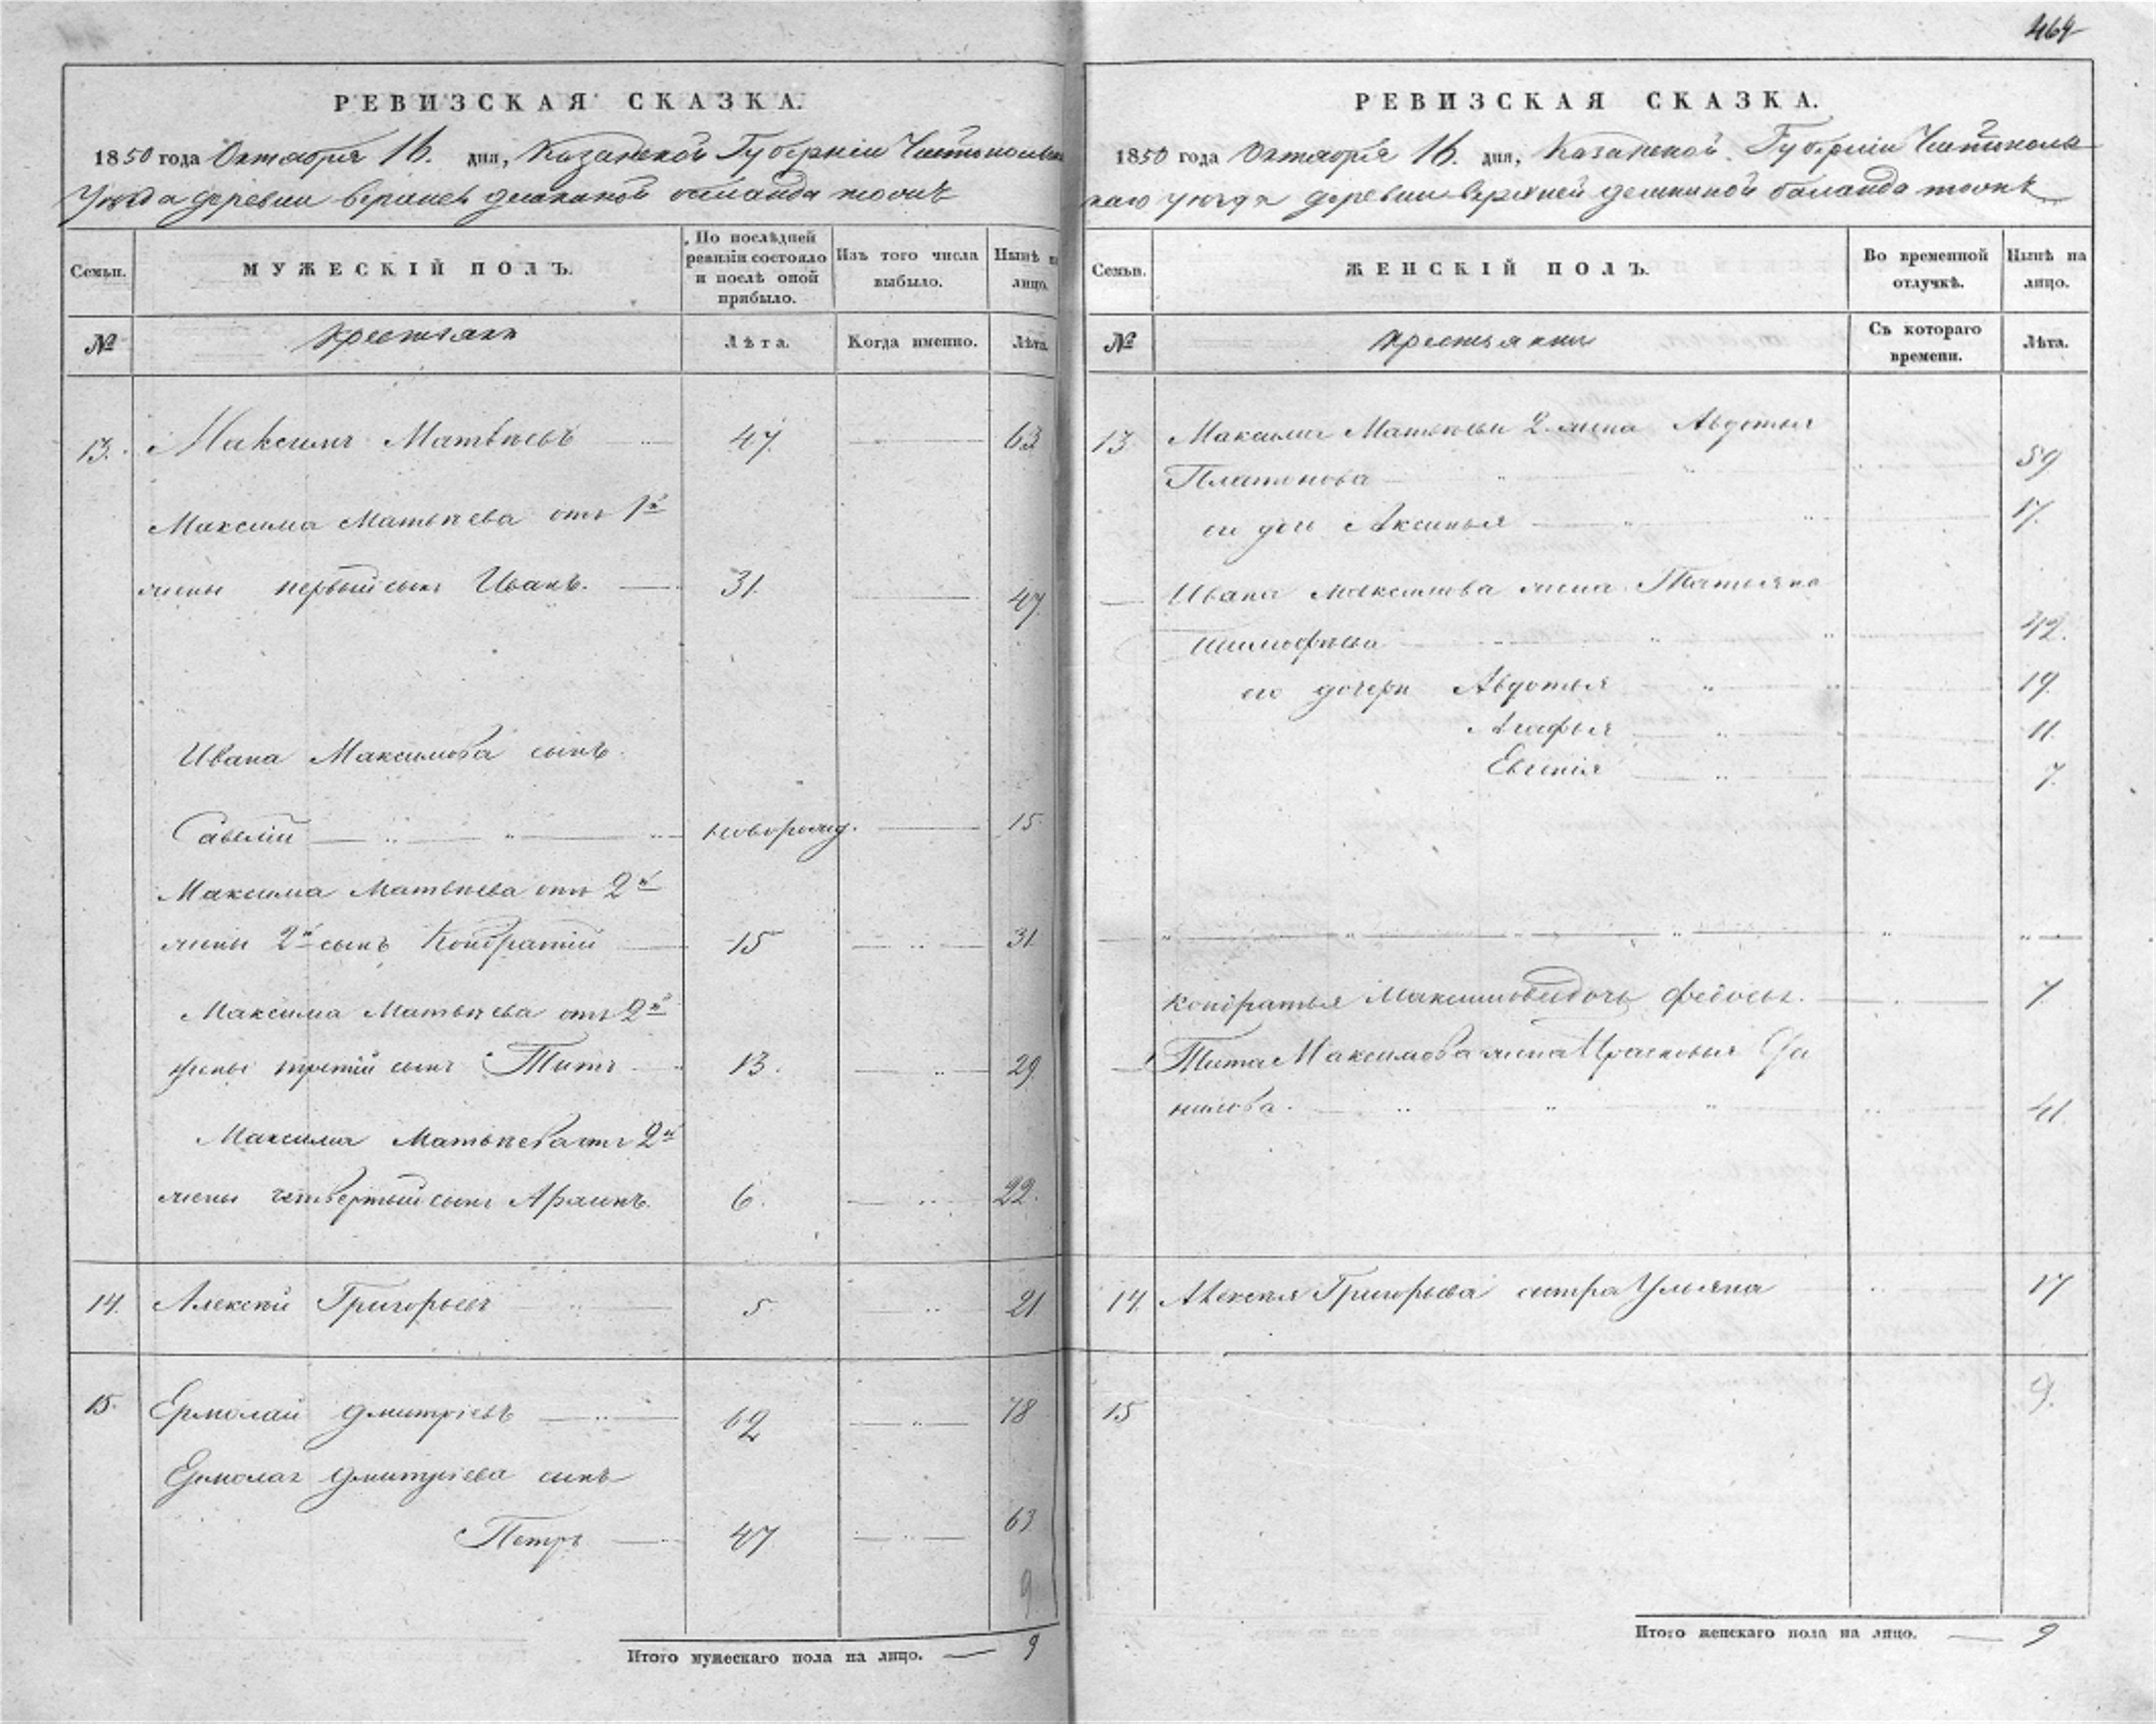 469
РЕВИЗСКАЯ СКАЗКА.
1850 года Октября 16. дня, Казанской Губерніи Чистопольска
Уѣзда деревни верхней
Семьи.
МУЖЕСКІЙ ПОЛЪ.
По послѣдней ревизіи состояло и послѣ оной прибыло.
Изъ того числа выбыло.
Нынѣ на лицо.
№
крестьяне
Лѣта.
Когда именно.
Лѣта.
13. Максимъ Матвѣевъ 47. 63
Максима Матвѣева отъ 1й
жены первый сынъ Иванъ. 31. 47.
Ивана Максимова сынъ.
Савелій новорожд. 15.
Максима Матвѣева отъ 2й
жены 2й сынъ Кондратій 15 31
Максима Матвѣева отъ 2й
жены третій сынъ Титъ 13. 29.
Максима Матвѣева отъ 2й
жены четвертый сынъ 6. 22.
14. Алексѣй Григорьевъ 5. 21
15. Ермолай Дмитріевъ 62 78
Ермолая Дмитріева сынъ
Петръ 47. 63
9
Итого мужескаго пола на лицо. 9
РЕВИЗСКАЯ СКАЗКА.
1850 года Октября 16. дня, Казанской Губерніи Чистополь
скаго уѣзда деревни верхней
Семьи.
ЖЕНСКІЙ ПОЛЪ.
Во временной отлучкѣ.
Нынѣ на лицо.
№
крестьянки
Съ котораго времени.
Лѣта.
13. Максима Матвѣева 2. жена Авдотья
Платонова 59
его дочь Аксинья 17.
Ивана Максимова жена Татьяна
Тимофѣева 42.
его дочери Авдотья 19.
Агафья 11.
Евгенія 7.
Кондратья Максимова дочь Федосья. 7
Тита Максимова жена Прасковья Да
нилова. 41.
14. Алексѣя Григорьева сестра Ульяна 17
15 9.
Итого женскаго пола на лицо. 9